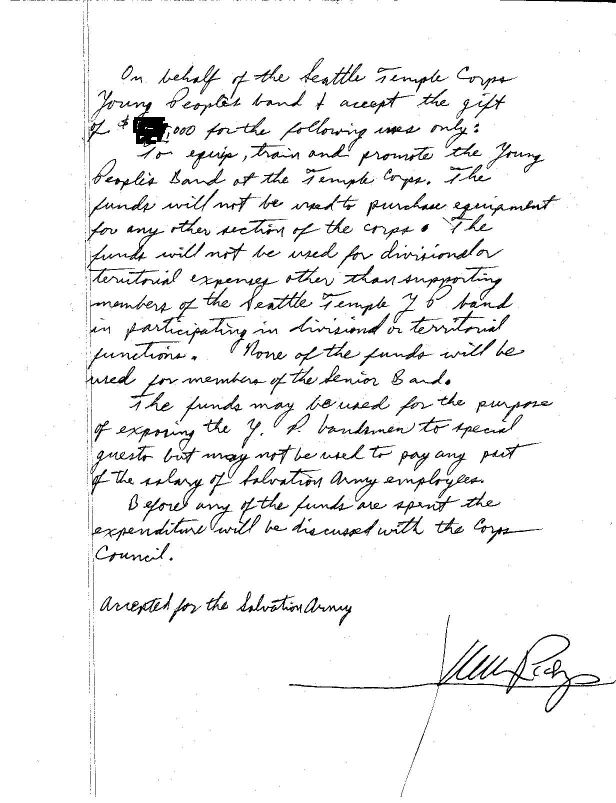 On behalf of the Seattle Temple Corps
Young Peoples band I accept the gift
of $ ,000 for the following uses only:
To equip, train and promote the Young
People's Band at the Temple Corps. The
funds will not be used to purchase equipment
for any other section of the corps. The
funds will not be used for divisional or
territorial expenses other than supporting
members of the Seattle Temple Y P band
in participating in divisional or territorial
functions. None of the funds will be
used for members of the Senior Band.
The funds may be used for the purpose
of exposing the Y. P. bandsmen to special
guests but may not be used to pay any part
of the salary of Salvation Army employees.
Before any of the funds are spent the
expenditure will be discussed with the Corps
Council.
Accepted for the Salvation Army